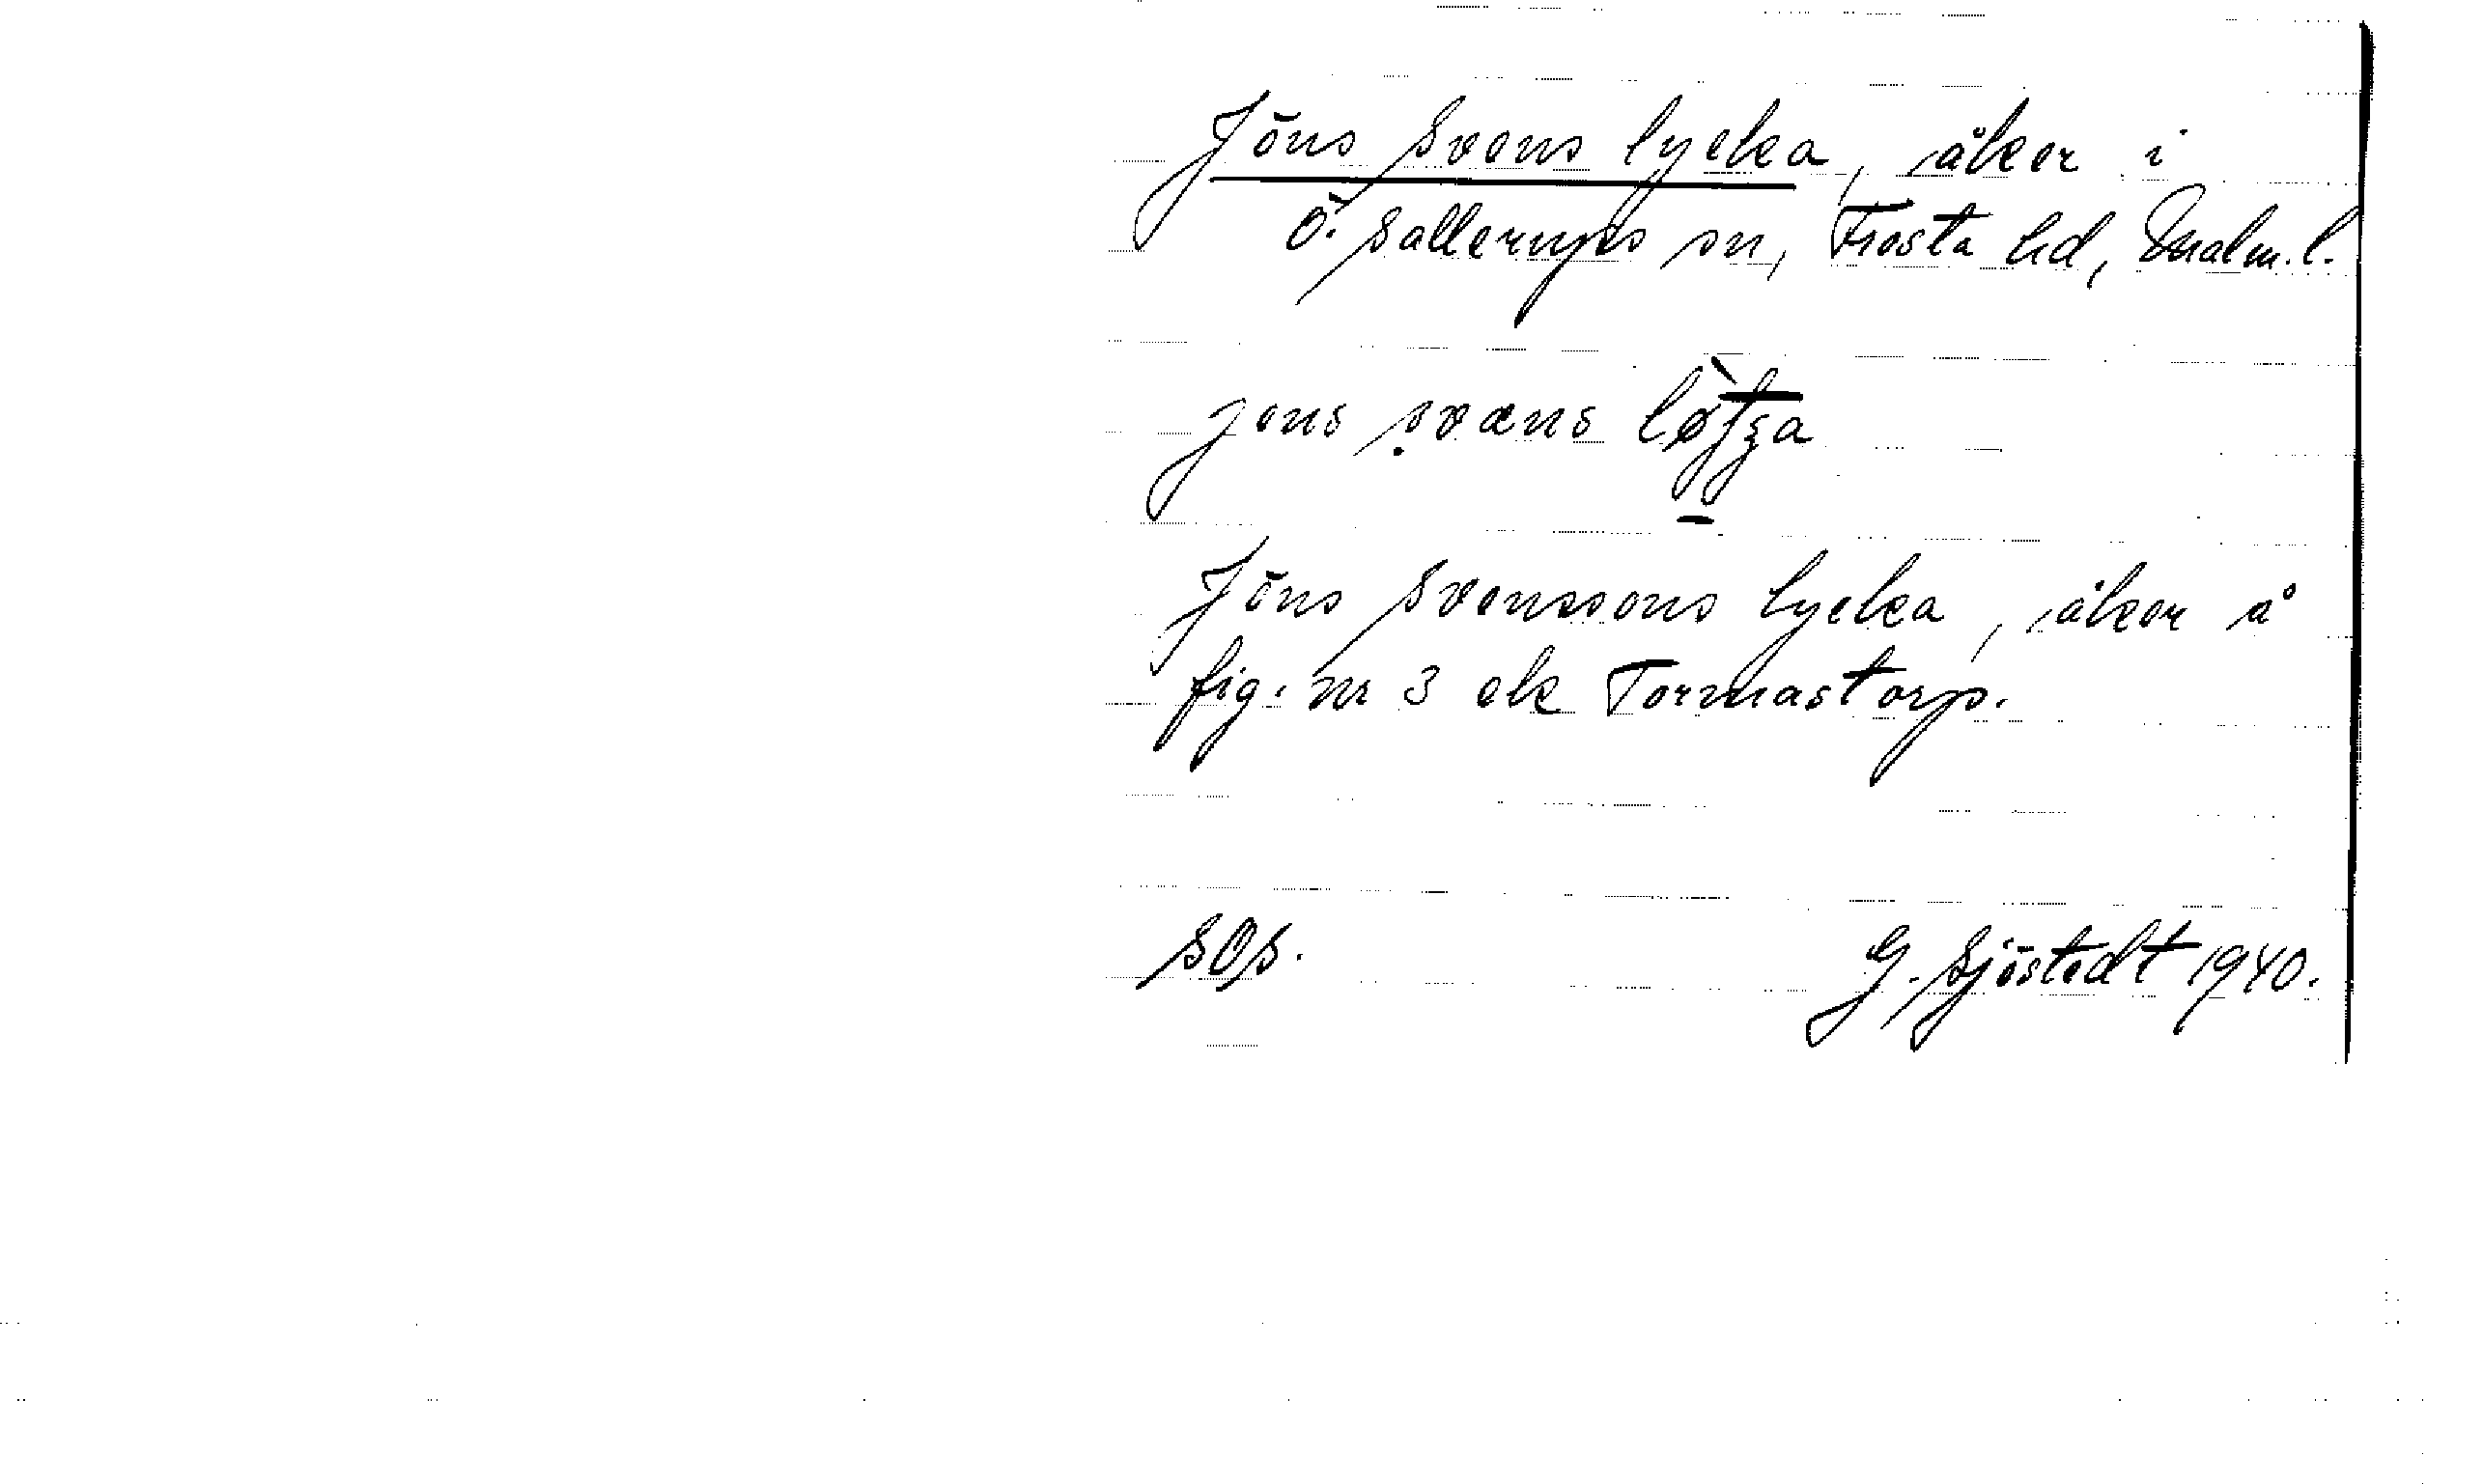 Jöns Svens lycka, åker i
Ö. Sallerups sn, Frosta hd, Malm. l.
Jöns Svenssons lycka, åker å
fig. nr 3 ek Tormastorp.
SOS.
G. Sjöstedt 1940.